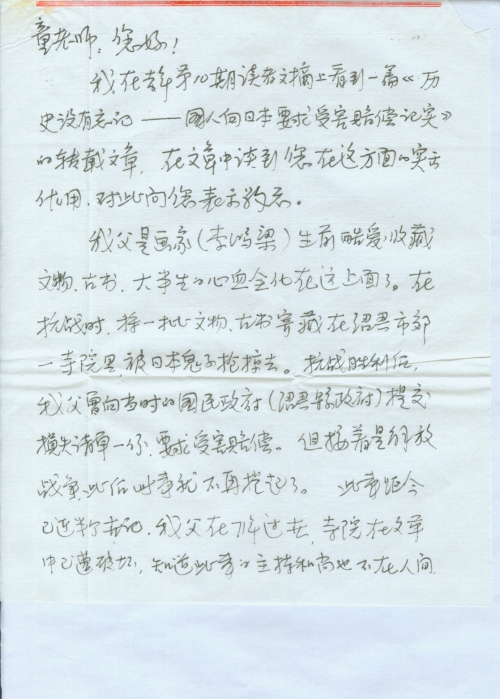 童老师：您好！
我在去年第10期读者文摘上看到一篇《历
史没有忘记——国人向日本要求受害赔偿记实》
的转载文章，在文章中谈到您在这方面的突出
作用，对此向您表示敬意。
我父是画家（李鸿梁）生前酷爱收藏
文物、古书，大半生的心血全化在这上面了。在
抗战时，择一批文物、古书寄藏在绍兴市郊
一寺院里，被日本鬼子抢掠去。抗战胜利后，
我父曾向当时的国民政府（绍兴县政府）提交
损失清单一份，要求受害赔偿。但接着是解放
战争，此后此事就不再提起了。此事距今
已近半个世纪，我父在71年过世，寺院在文革
中已遭破坏，知道此事的主持和尚也不在人间